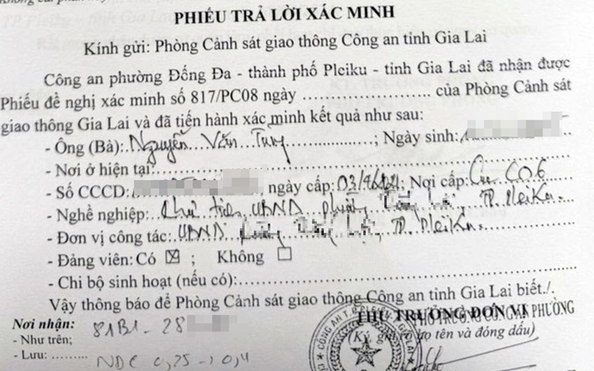 PHIẾU TRẢ LỜI XÁC MINH
Kính gửi: Phòng Cảnh sát giao thông Công an tỉnh Gia Lai
Công an phường Đống Đa - thành phố Pleiku - tỉnh Gia Lai đã nhận được
Phiếu đề nghị xác minh số 817/PC08 ngày ........................ của Phòng Cảnh sát
giao thông Gia Lai và đã tiến hành xác minh kết quả như sau:
- Ông (Bà): Nguyễn Văn Tùng ; Ngày sinh:
- Nơi ở hiện tại:
- Số CCCD: ngày cấp: Nơi cấp: Cục C06
- Nghề nghiệp: Chủ tịch UBND phường TP. PleiKu.
- Đơn vị công tác: UBND TP. PleiKu.
- Đảng viên: Có ☒ ; Không ☐
- Chi bộ sinh hoạt (nếu có):
Vậy thông báo để Phòng Cảnh sát giao thông Công an tỉnh Gia Lai biết./.
THỦ TRƯỞNG ĐƠN VỊ
Nơi nhận: 81B1 - 28
- Như trên;
- Lưu: NDC 0,25 - 0,4